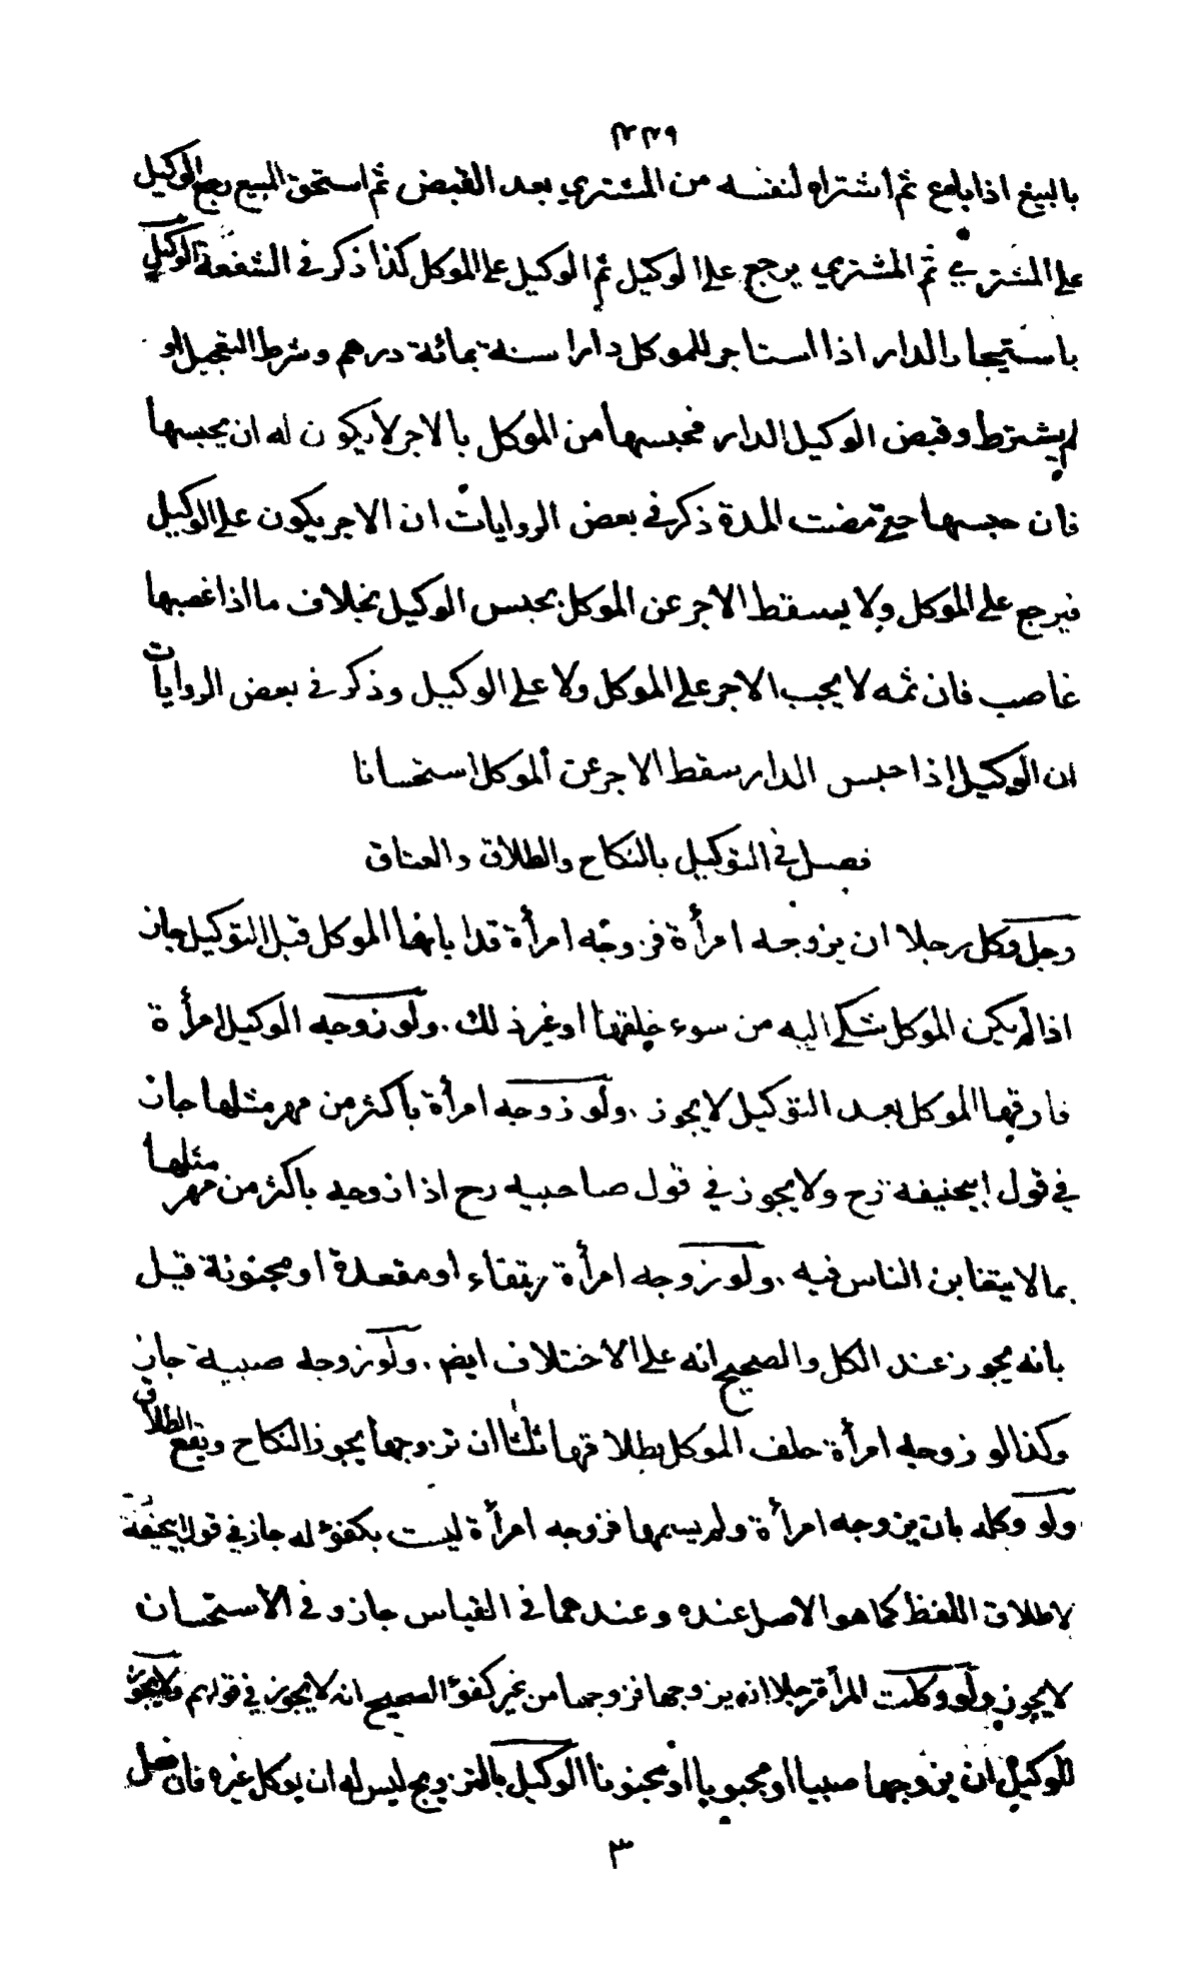 ٢٢٩
بالبيع اذا باع ثم اشتراه لنفسه من المشتري بعد القبض ثم استحق المبيع رجع الوكيل
على المشتري ثم المشتري يرجع على الوكيل ثم الوكيل على الموكل كذا ذكر في الشفعة الوكيل
باستيجار الدار اذا استاجر للموكل دارا سنة بمائة درهم وشرط التعجيل او
لم يشترط وقبض الوكيل الدار فحبسها من الموكل بالاجر لا يكون له ان يحبسها
فان حبسها حتى مضت المدة ذكر في بعض الروايات ان الاجر يكون على الوكيل
فيرجع على الموكل ولا يسقط الاجر عن الموكل بحبس الوكيل بخلاف ما اذا غصبها
غاصب فان ثمه لا يجب الاجر على الموكل ولا على الوكيل وذكر في بعض الروايات
ان الوكيل اذا حبس الدار سقط الاجر عن الموكل استحسانا
فصل في التوكيل بالنكاح والطلاق والعتاق
رجل وكل رجلا ان يزوجه امرأة فزوجه امرأة قد ابانها الموكل قبل التوكيل جاز
اذا لم يكن الموكل شكى اليه من سوء خلقها او غير ذلك . ولو زوجه الوكيل امرأة
فارقها الموكل بعد التوكيل لا يجوز . ولو زوجه امرأة باكثر من مهر مثلها جاز
في قول ابيحنيفة رح ولا يجوز في قول صاحبيه رح اذا زوجه باكثر من مهر مثلها
بما لا يتغابن الناس فيه . ولو زوجه امرأة رتقاء او مقعدة او مجنونة قيل
بانه يجوز عند الكل والصحيح انه على الاختلاف ايضا . ولو زوجه صبية جاز
وكذا لو زوجه امرأة حلف الموكل بطلاقها ثلثا ان تزوجها يجوز النكاح ويقع الطلاق
ولو وكله بان يزوجه امرأة ولم يسمها فزوجه امرأة ليست بكفؤ له جاز في قول ابيحنيفة
لاطلاق اللفظ كما هو الاصل عنده وعندهما في القياس جاز وفي الاستحسان
لا يجوز ولو وكلت المرأة رجلا انه يزوجها فزوجها من غير كفؤ الصحيح انه لا يجوز في قولهم ولا يجوز
للوكيل ان يزوجها صبيا او مجبوبا او مجنونا الوكيل بالتزويج ليس له ان يوكل غيره فان فعل
٣